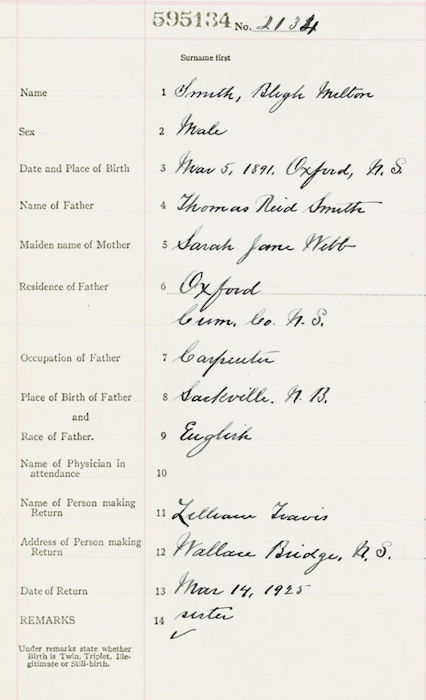 595134 No. 2134
Surname first
Name 1 Smith, Bligh Milton
Sex 2 Male
Date and Place of Birth 3 Mar 5, 1891. Oxford, N.S.
Name of Father 4 Thomas Reid Smith
Maiden name of Mother 5 Sarah Jane Webb
Residence of Father 6 Oxford
Cum. Co. N.S.
Occupation of Father 7 Carpenter
Place of Birth of Father 8 Sackville. N.B.
and
Race of Father. 9 English
Name of Physician in
attendance 10
Name of Person making
Return 11 Lilliam Travis
Address of Person making
Return 12 Wallace Bridge, N.S.
Date of Return 13 Mar 14, 1925
REMARKS 14 sister
Under remarks state whether
Birth is Twin, Triplet, Ille-
gitimate or Still-birth.